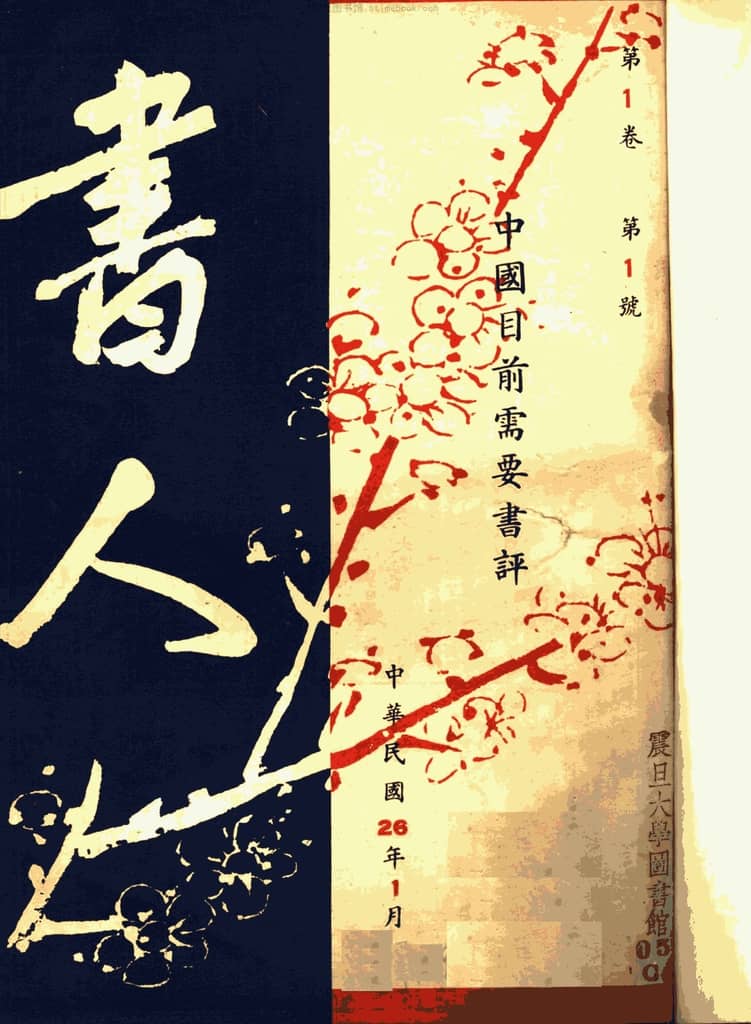 書人
第1卷 第1號
中國目前需要書評
中華民國26年1月
震旦大學圖書館
05
C